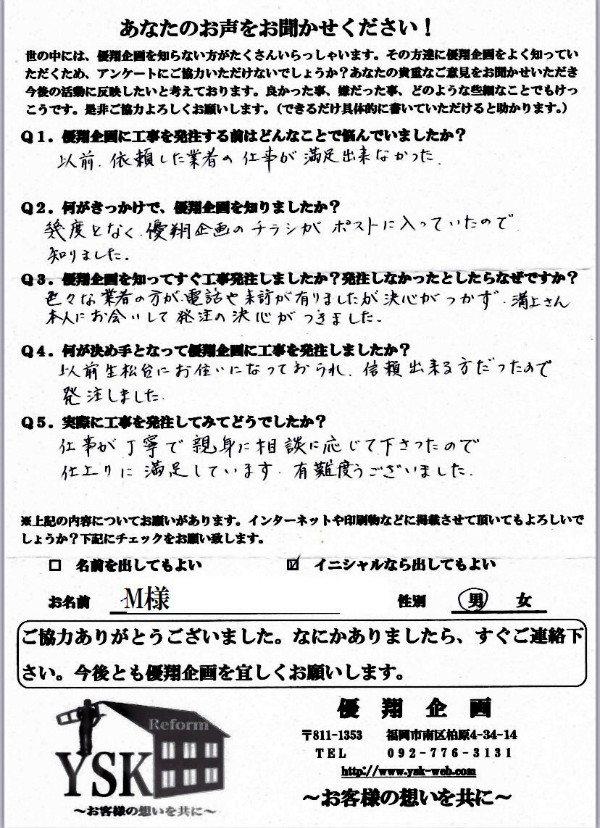 あなたのお声をお聞かせください！
世の中には、優翔企画を知らない方がたくさんいらっしゃいます。その方達に優翔企画をよく知ってい
ただくため、アンケートにご協力いただけないでしょうか？あなたの貴重なご意見をお聞かせいただき
今後の活動に反映したいと考えております。良かった事、嫌だった事、どのような些細なことでもけっ
こうです。是非ご協力よろしくお願いします。（できるだけ具体的に書いていただけると助かります。）
Q1．優翔企画に工事を発注する前はどんなことで悩んでいましたか？
以前、依頼した業者の仕事が満足出来なかった。
Q2．何がきっかけで、優翔企画を知りましたか？
幾度となく、優翔企画のチラシが ポストに入っていたので
知りました。
Q3．優翔企画を知ってすぐ工事発注しましたか？発注しなかったとしたらなぜですか？
色々な業者の方が、電話や来訪が有りましたが決心がつかず、溝上さん
本人にお会いして発注の決心がつきました。
Q4．何が決め手となって優翔企画に工事を発注しましたか？
以前生松台にお住いになっておられ、信頼出来る方だったので
発注しました。
Q5．実際に工事を発注してみてどうでしたか？
仕事が丁寧で親身に相談に応じて下さったので
仕上りに満足しています。有難度うございました。
※上記の内容についてお願いがあります。インターネットや印刷物などに掲載させて頂いてもよろしいで
しょうか？下記にチェックをお願い致します。
□ 名前を出してもよい ☑ イニシャルなら出してもよい
お名前 M様 性別 男 女
ご協力ありがとうございました。なにかありましたら、すぐご連絡下
さい。今後とも優翔企画を宜しくお願いします。
Reform
YSK
～お客様の想いを共に～
優翔企画
〒811-1353 福岡市南区柏原4-34-14
TEL 092-776-3131
http://www.ysk-web.com
～お客様の想いを共に～